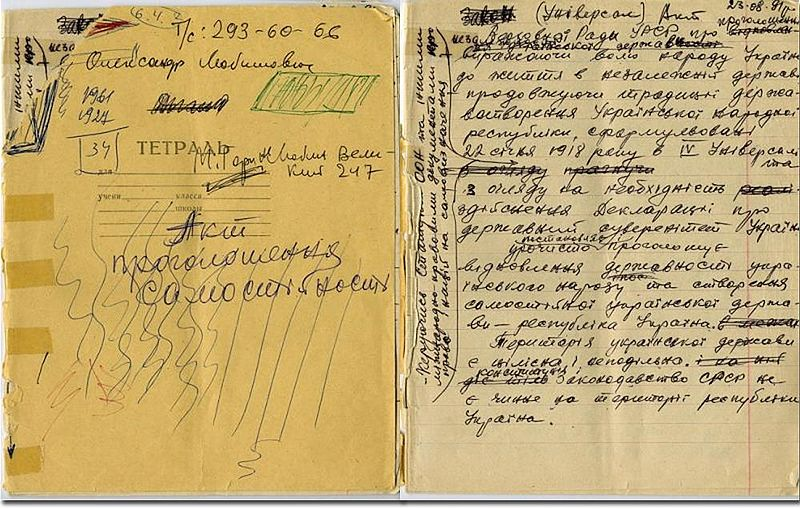 6.4.2
Т/с: 293-60-66
Олександр Любимович
1961
1927
34
ТЕТРАДЬ
М. Вели-
кий 247
для
учени класса
школы
Акт
проголошення
самостійності
Закон (Універсал) Акт
23-08-91р.
проголошення
Верховної Ради УРСР про
української державності
Виражаючи волю народу України
до життя в незалежній державі
продовжуючи традиції держа-
вотворення Української народної
республіки, сформульовані
22 січня 1918 року в IV Універсалі
та
в огляду
з огляду на необхідність
здійснення Декларації про
державний суверенітет України
урочисто проголошує
відновлення державності укра-
їнського народу та створення
самостійної української держа-
ви — республіка Україна.
Територія української держави
є цілісна і неподільна.
конституція і
Законодавство СРСР не
є чинне на території республіки
Україна.
- Керуючись Статутом ООН та іншими
міжнародно-правовими документами про
право нації на самовизначення